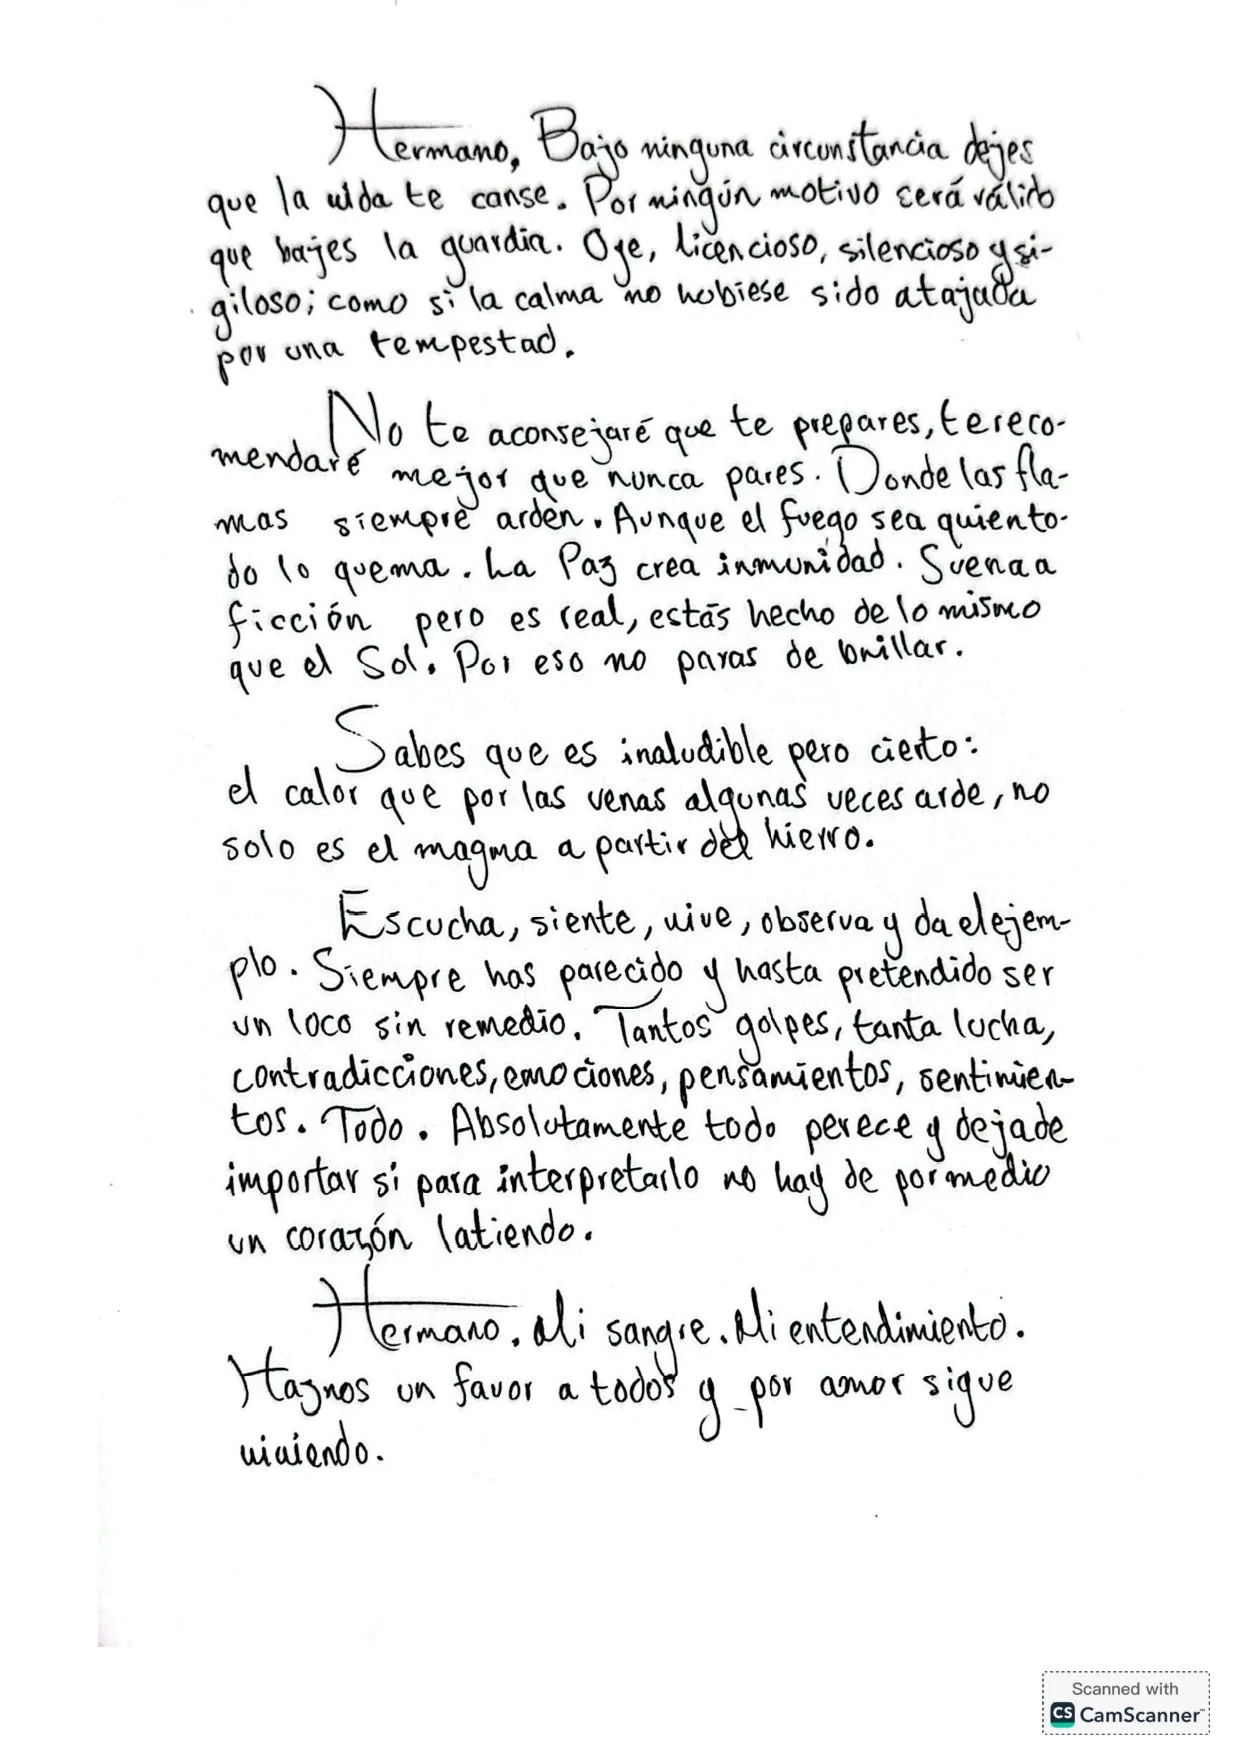 Hermano, Bajo ninguna circunstancia dejes
que la vida te canse. Por ningún motivo será válido
que bajes la guardia. Oye, licencioso, silencioso y si-
giloso; como si la calma no hubiese sido atajada
por una tempestad.
No te aconsejaré que te prepares, te reco-
mendaré mejor que nunca pares. Donde las fla-
mas siempre arden. Aunque el fuego sea quien to-
do lo quema. La Paz crea inmunidad. Suena a
ficción pero es real, estás hecho de lo mismo
que el Sol. Por eso no paras de brillar.
Sabes que es inaludible pero cierto:
el calor que por las venas algunas veces arde, no
solo es el magma a partir del hierro.
Escucha, siente, vive, observa y da el ejem-
plo. Siempre has parecido y hasta pretendido ser
un loco sin remedio. Tantos golpes, tanta lucha,
contradicciones, emociones, pensamientos, sentimien-
tos. Todo. Absolutamente todo perece y deja de
importar si para interpretarlo no hay de por medio
un corazón latiendo.
Hermano. Mi sangre. Mi entendimiento.
Haznos un favor a todos y por amor sigue
viviendo.
Scanned with
CS CamScanner